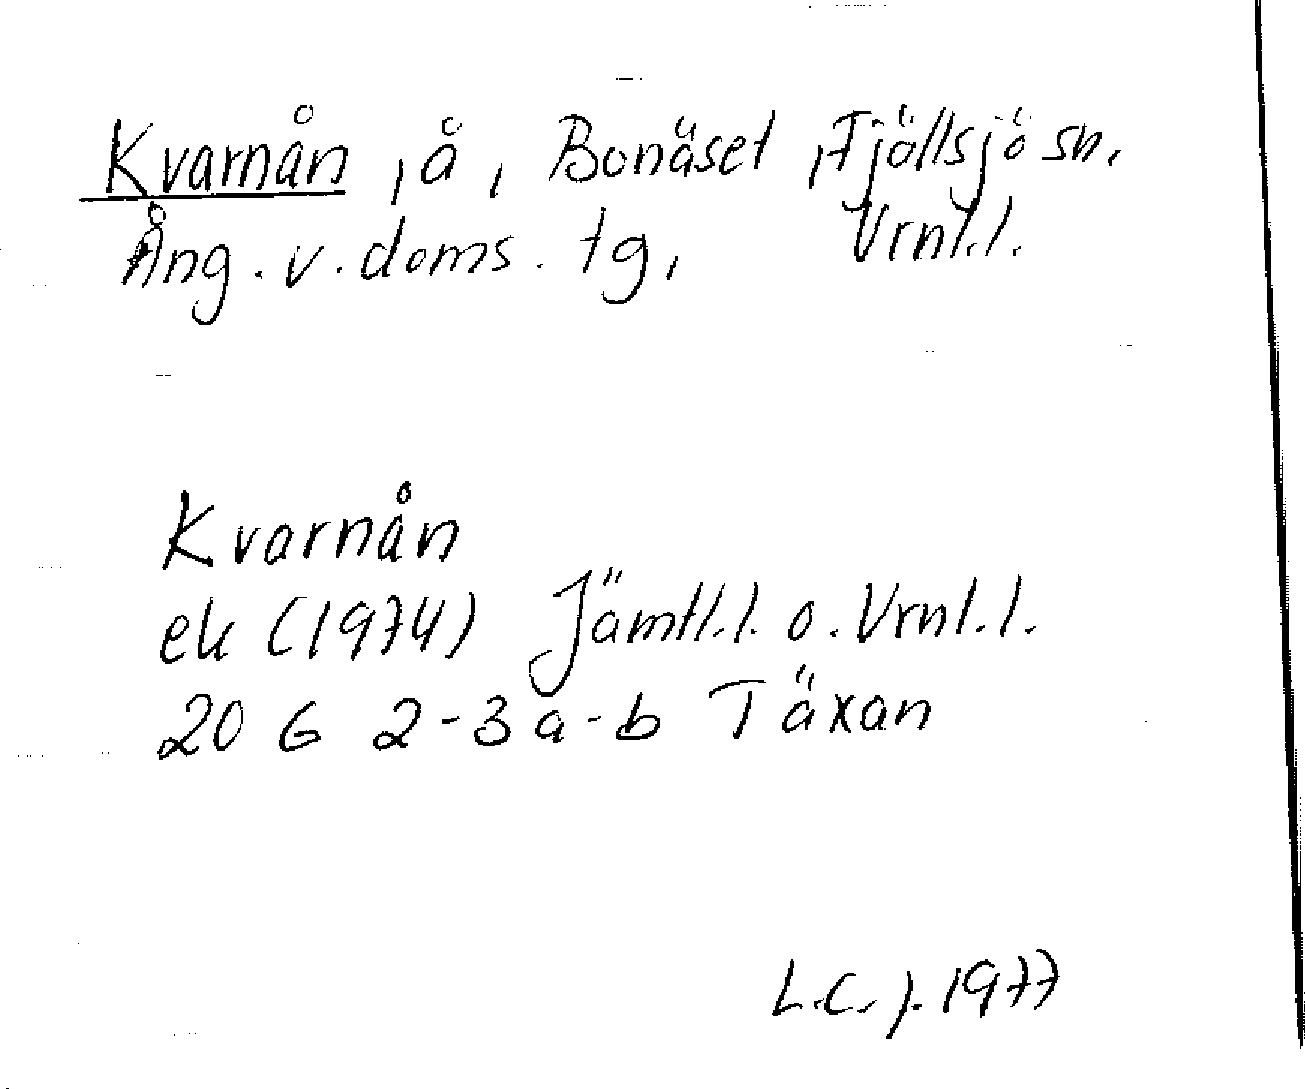 Kvarnån, å, Bonäset, Fjällsjö sn.
Ång. v. doms. tg, Vrnl.l.
Kvarnån
ek (1974) Jämtl.l. o. Vrnl.l.
20 G 2-3 a-b Täxan
L.C.J. 1977